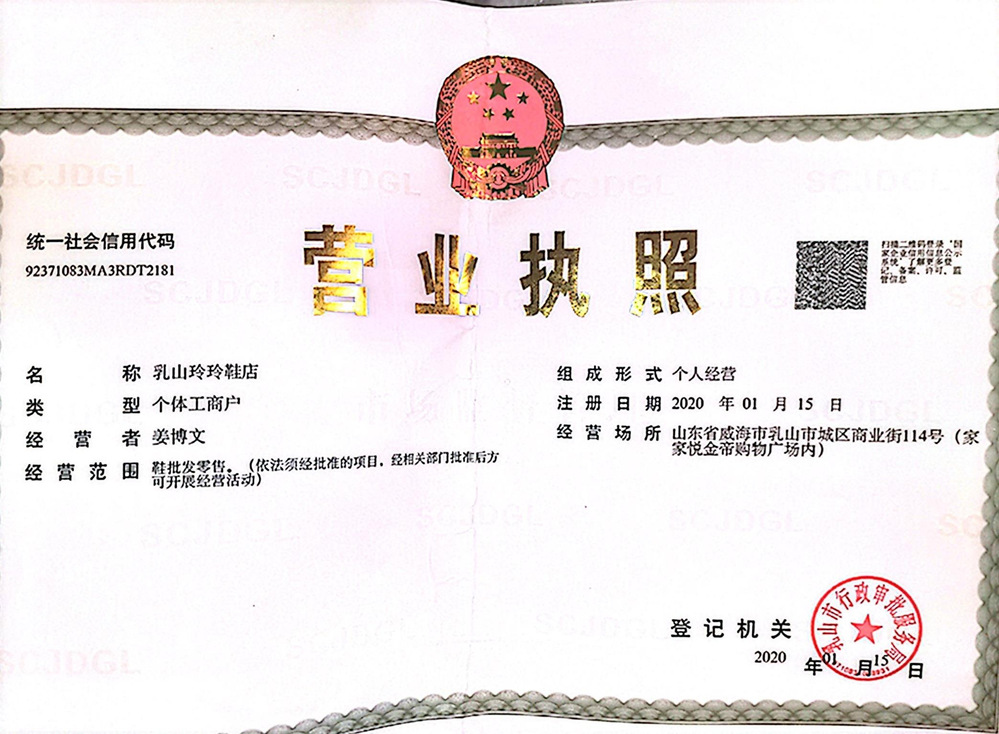 统一社会信用代码
92371083MA3RDT2181
营业执照
扫描二维码登录‘国
家企业信用信息公示
系统’了解更多登
记、备案、许可、监
管信息
名 称 乳山玲玲鞋店
类 型 个体工商户
经 营 者 姜博文
经 营 范 围 鞋批发零售。（依法须经批准的项目，经相关部门批准后方
可开展经营活动）
组 成 形 式 个人经营
注 册 日 期 2020 年 01 月 15 日
经 营 场 所 山东省威海市乳山市城区商业街114号（家
家悦金帝购物广场内）
登 记 机 关
乳山市行政审批服务局
2020 年 01 月 15 日
SCJDGL